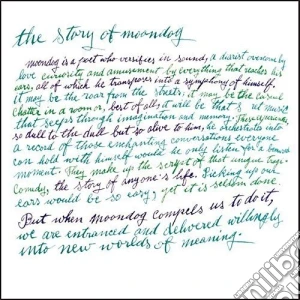 the story of moondog
moondog is a poet who versifies in sound, a diarist overcome by
love curiosity and amusement by everything that reaches his
ears, all of which he transposes into a symphony of himself.
it may be the roar from the streets, it may be the casual
chatter in a room or, best of all, it will be that secret music
that seeps through imagination and memory.
so dull to the dull but so alive to him, he orchestrates into
a record of those enchanting conversations everyone
can hold with himself would he only listen for a
moment. They make up the script of that unique tragi-
Comedy, the story of anyone's life. Picking up our
ears would be so easy, yet it is seldom done.
But when moondog compels us to do it,
we are entranced and delivered willingly
into new worlds of meaning.